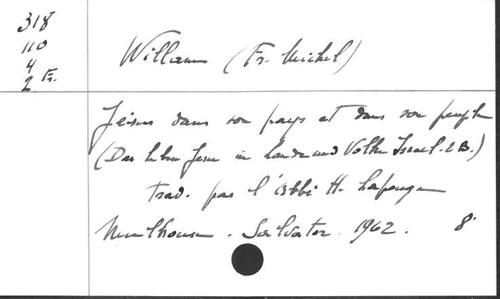 318
110
4
2 Fr.
Willam (Fr. Michel)
Jésus dans son pays et dans son peuple
(Das Leben Jesu im Lande und Volke Israel. 2 B.)
trad. par l'abbé H.
Mulhouse. Salvator. 1962. 8°